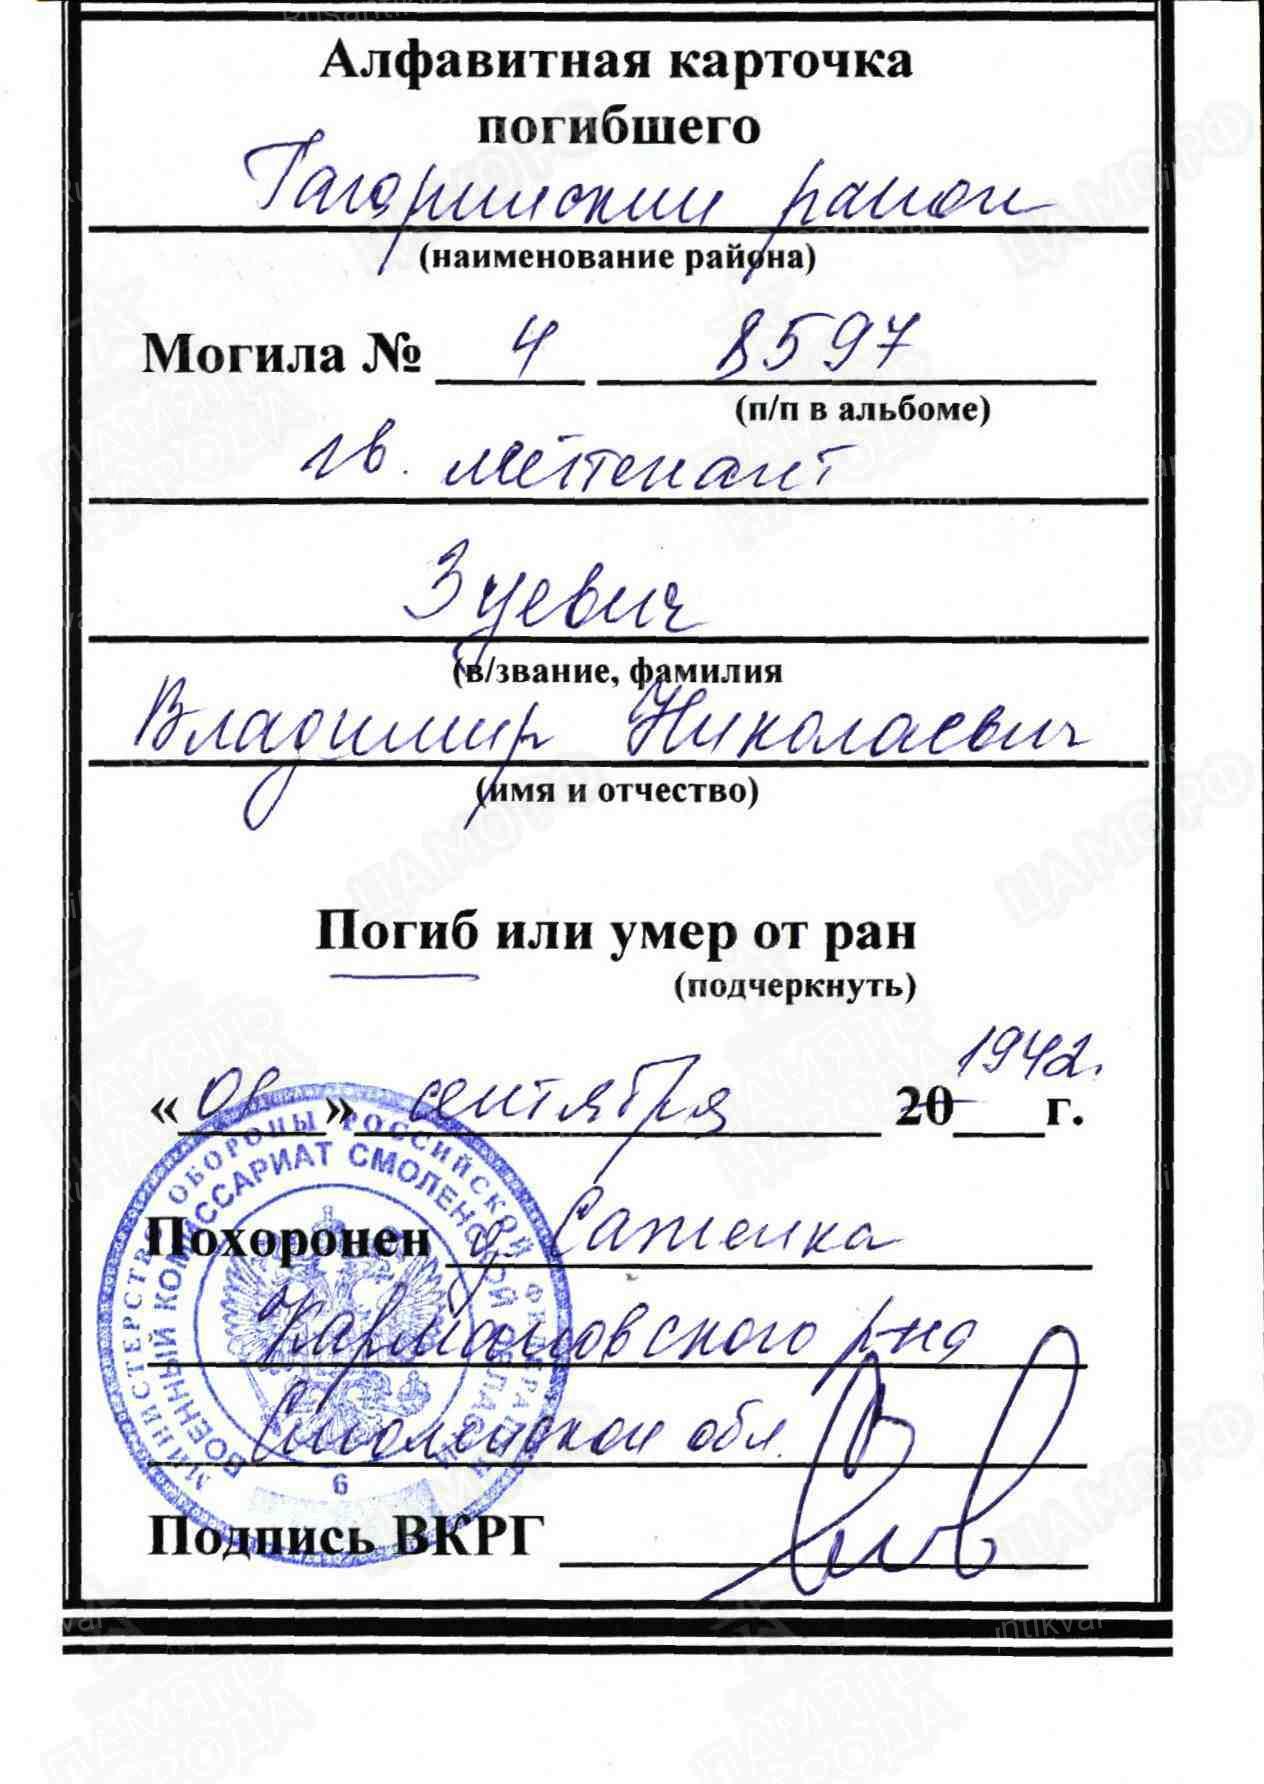 Алфавитная карточка
погибшего
Гагаринский район
(наименование района)
Могила № 4 8597
(п/п в альбоме)
гв. лейтенант
Зуевич
(в/звание, фамилия
Владимир Николаевич
(имя и отчество)
Погиб или умер от ран
(подчеркнуть)
1942г.
« » сентября 20 г.
Похоронен д. Саженка
Кармановского р-на
Смоленской обл.
Подпись ВКРГ
МИНИСТЕРСТВО ОБОРОНЫ РОССИЙСКОЙ ФЕДЕРАЦИИ
ВОЕННЫЙ КОМИССАРИАТ СМОЛЕНСКОЙ ОБЛАСТИ
6
ЦАМО РФ
ПАМЯТЬ
НАРОДА
Rusantikvar